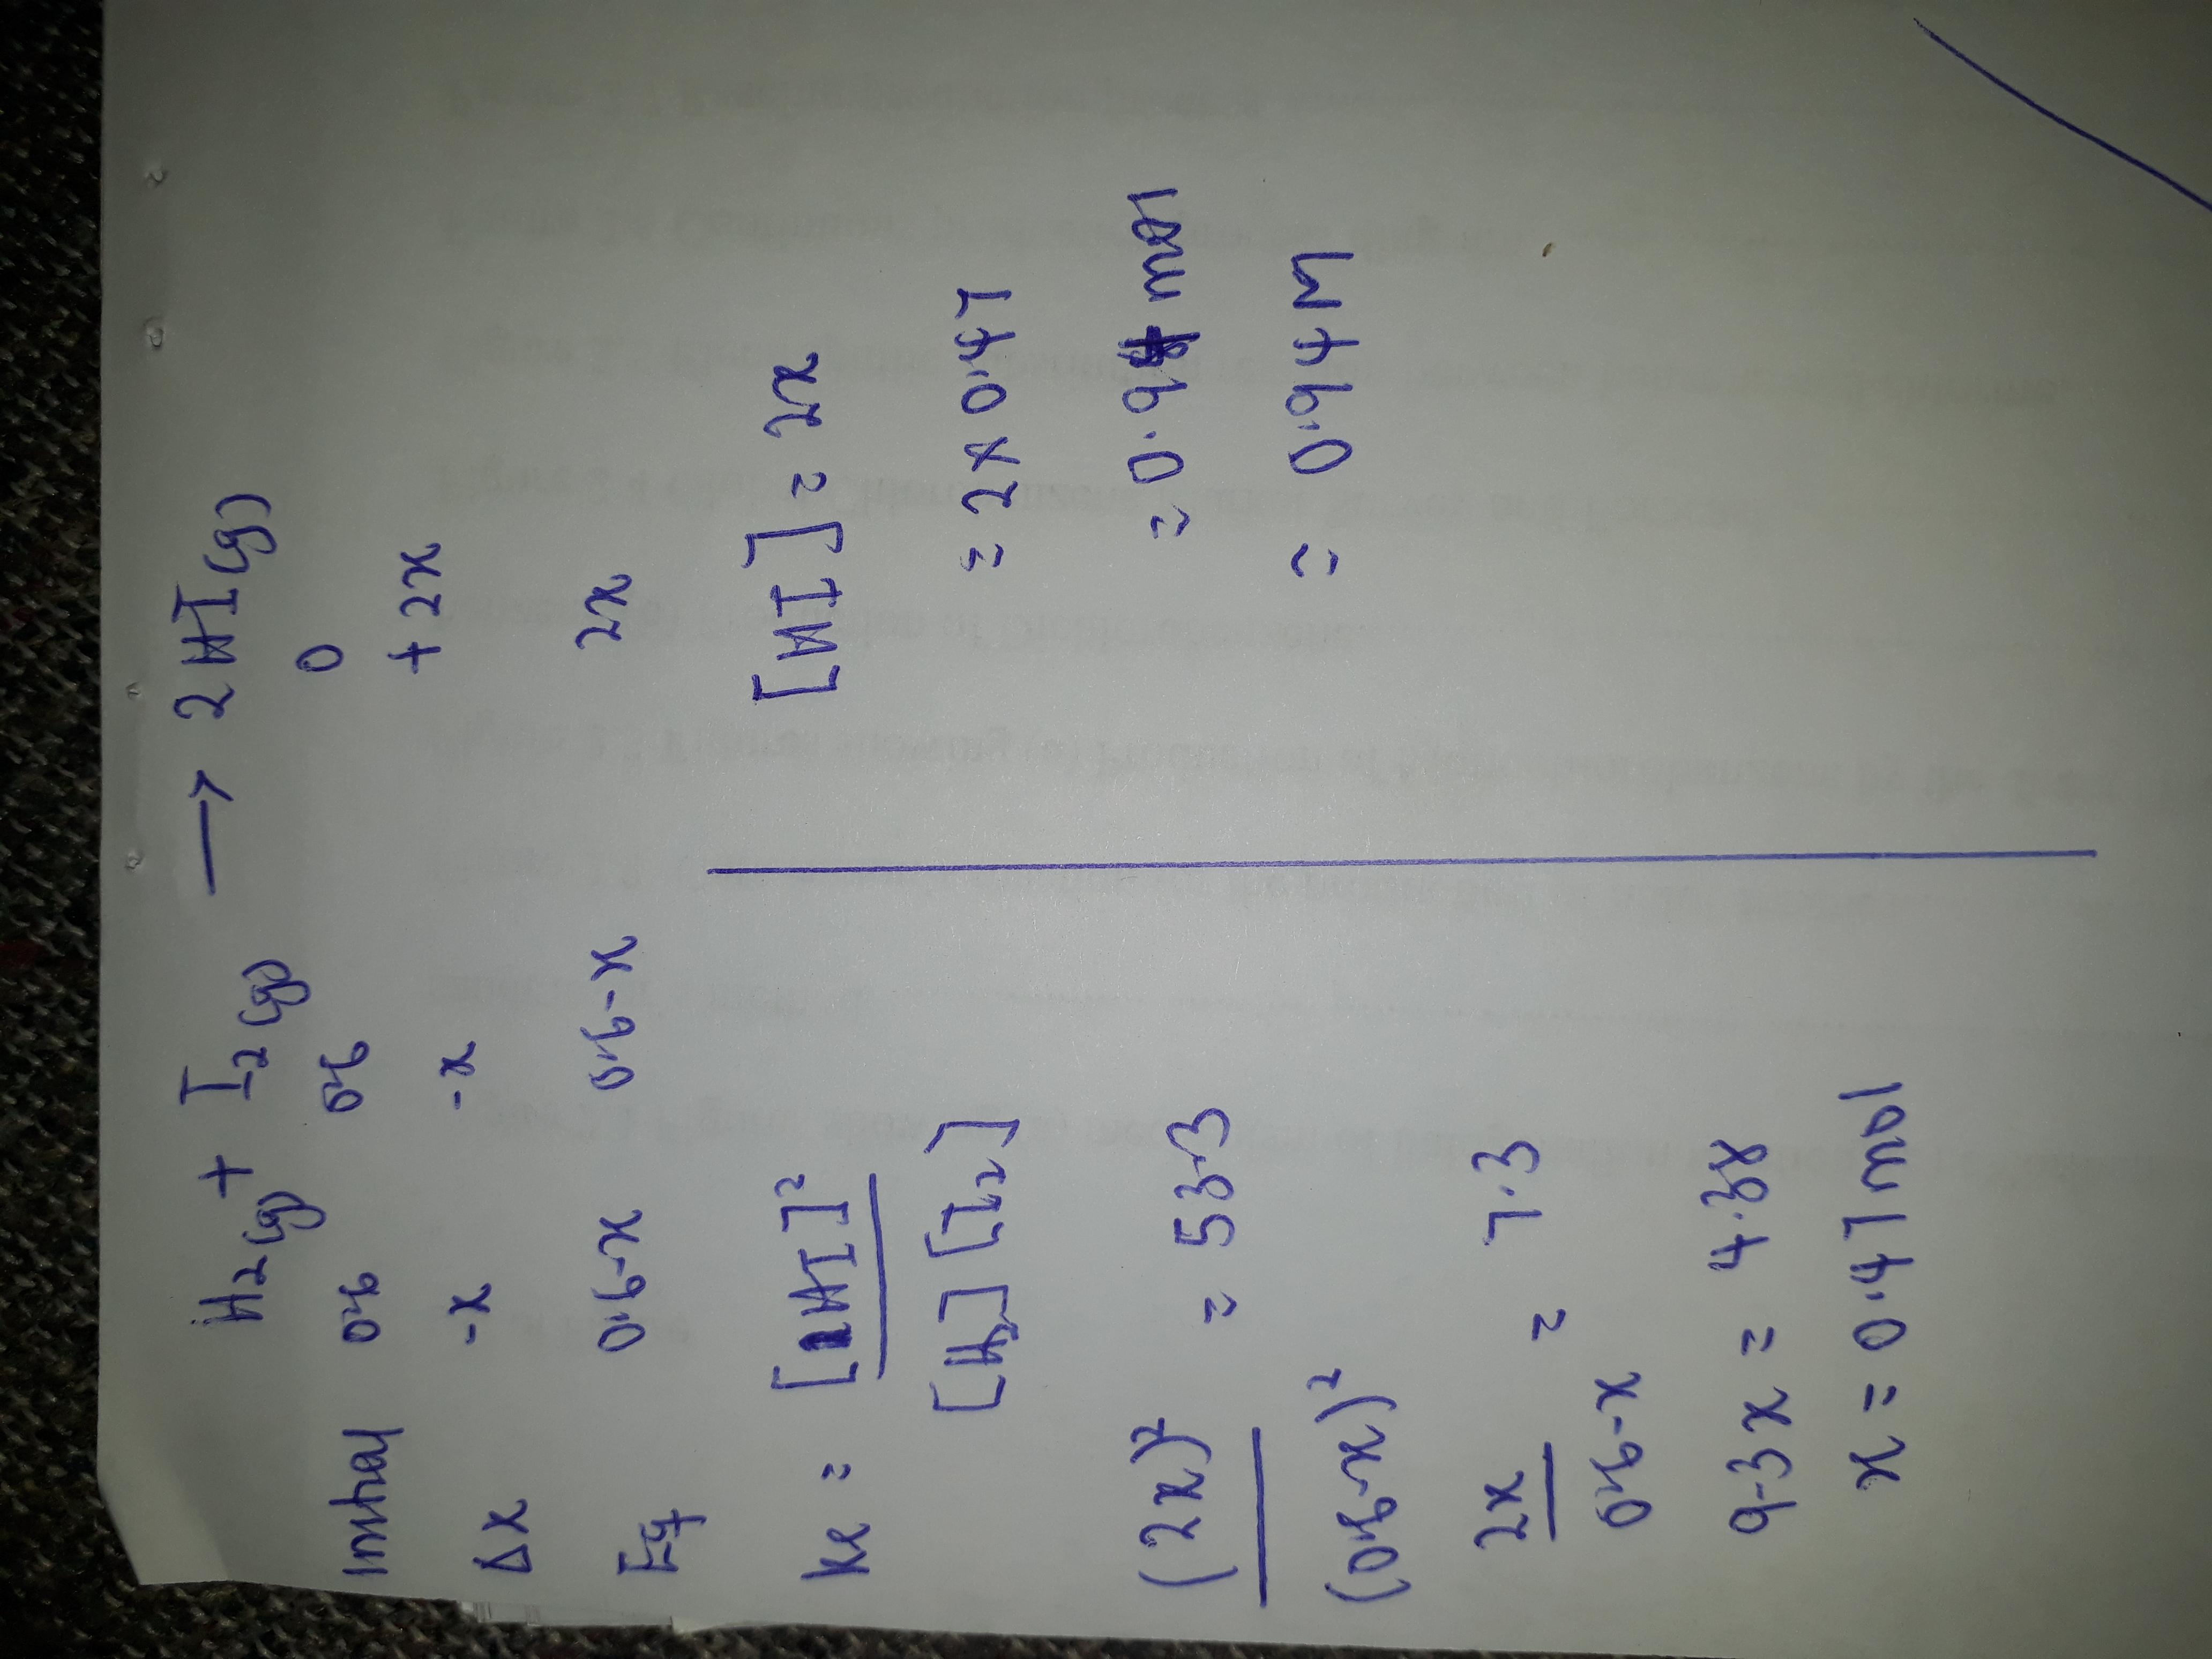 H₂(g) + I₂(g) → 2HI(g)
Initial 0.6 0.6 0
Δx -x -x +2x
Eq 0.6-x 0.6-x 2x
Kc = [HI]²
[H₂] [I₂]
(2x)² = 53.3
(0.6-x)²
2x = 7.3
0.6-x
9.3x = 4.38
x = 0.47 mol
[HI] = 2x
= 2x0.47
= 0.94 mol
= 0.94M